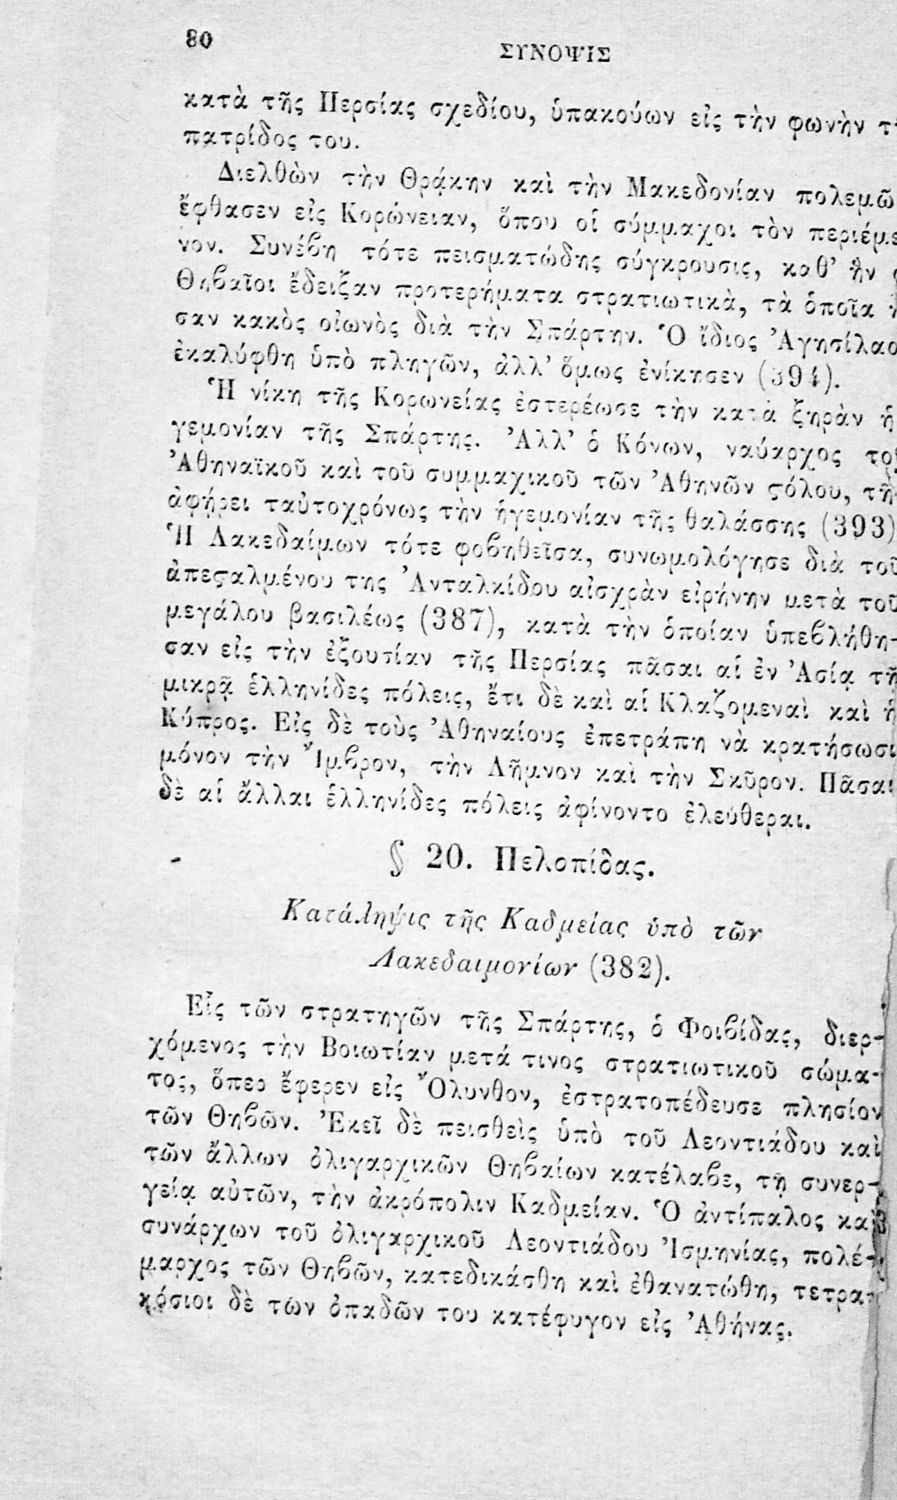 80
ΣΥΝΟΨΙΣ
κατὰ τῆς Περσίας σχεδίου, ὑπακούων εἰς τὴν φωνὴν
πατρίδος του.
Διελθὼν τὴν Θρᾴκην καὶ τὴν Μακεδονίαν πολεμῶ
ἔφθασεν εἰς Κορώνειαν, ὅπου οἱ σύμμαχοι τὸν περιέμε
νον. Συνέβη τότε πεισματώδης σύγκρουσις, καθ' ἣν
Θηβαῖοι ἔδειξαν προτερήματα στρατιωτικὰ, τὰ ὁποῖα
σαν κακὸς οἰωνὸς διὰ τὴν Σπάρτην. Ὁ ἴδιος Ἀγησίλαο
ἐκαλύφθη ὑπὸ πληγῶν, ἀλλ' ὅμως ἐνίκησεν (394).
Ἡ νίκη τῆς Κορωνείας ἐστερέωσε τὴν κατὰ ξηρὰν ἡ
γεμονίαν τῆς Σπάρτης. Ἀλλ' ὁ Κόνων, ναύαρχος το
Ἀθηναϊκοῦ καὶ τοῦ συμμαχικοῦ τῶν Ἀθηνῶν ϛόλου, τὴ
ἀφῄρει ταὐτοχρόνως τὴν ἡγεμονίαν τῆς θαλάσσης (393)
Ἡ Λακεδαίμων τότε φοβηθεῖσα, συνωμολόγησε διὰ τοῦ
ἀπεϛαλμένου της Ἀνταλκίδου αἰσχρὰν εἰρήνην μετὰ τοῦ
μεγάλου βασιλέως (387), κατὰ τὴν ὁποίαν ὑπεβλήθη-
σαν εἰς τὴν ἐξουσίαν τῆς Περσίας πᾶσαι αἱ ἐν Ἀσίᾳ τῇ
μικρᾷ ἑλληνίδες πόλεις, ἔτι δὲ καὶ αἱ Κλαζομεναὶ καὶ ἡ
Κύπρος. Εἰς δὲ τοὺς Ἀθηναίους ἐπετράπη νὰ κρατήσωσι
μόνον τὴν Ἴμβρον, τὴν Λῆμνον καὶ τὴν Σκῦρον. Πᾶσαι
δὲ αἱ ἄλλαι ἑλληνίδες πόλεις ἀφίνοντο ἐλεύθεραι.
§ 20. Πελοπίδας.
Κατάληψις τῆς Καδμείας ὑπὸ τῶν
Λακεδαιμονίων (382).
Εἷς τῶν στρατηγῶν τῆς Σπάρτης, ὁ Φοιβίδας, διερ-
χόμενος τὴν Βοιωτίαν μετά τινος στρατιωτικοῦ σώμα-
τος, ὅπερ ἔφερεν εἰς Ὄλυνθον, ἐστρατοπέδευσε πλησίον
τῶν Θηβῶν. Ἐκεῖ δὲ πεισθεὶς ὑπὸ τοῦ Λεοντιάδου καὶ
τῶν ἄλλων ὀλιγαρχικῶν Θηβαίων κατέλαβε, τῇ συνερ-
γείᾳ αὐτῶν, τὴν ἀκρόπολιν Καδμείαν. Ὁ ἀντίπαλος καὶ
συνάρχων τοῦ ὀλιγαρχικοῦ Λεοντιάδου Ἰσμηνίας, πολέ-
μαρχος τῶν Θηβῶν, κατεδικάσθη καὶ ἐθανατώθη, τετρα-
κόσιοι δὲ τῶν ὀπαδῶν του κατέφυγον εἰς Ἀθήνας.